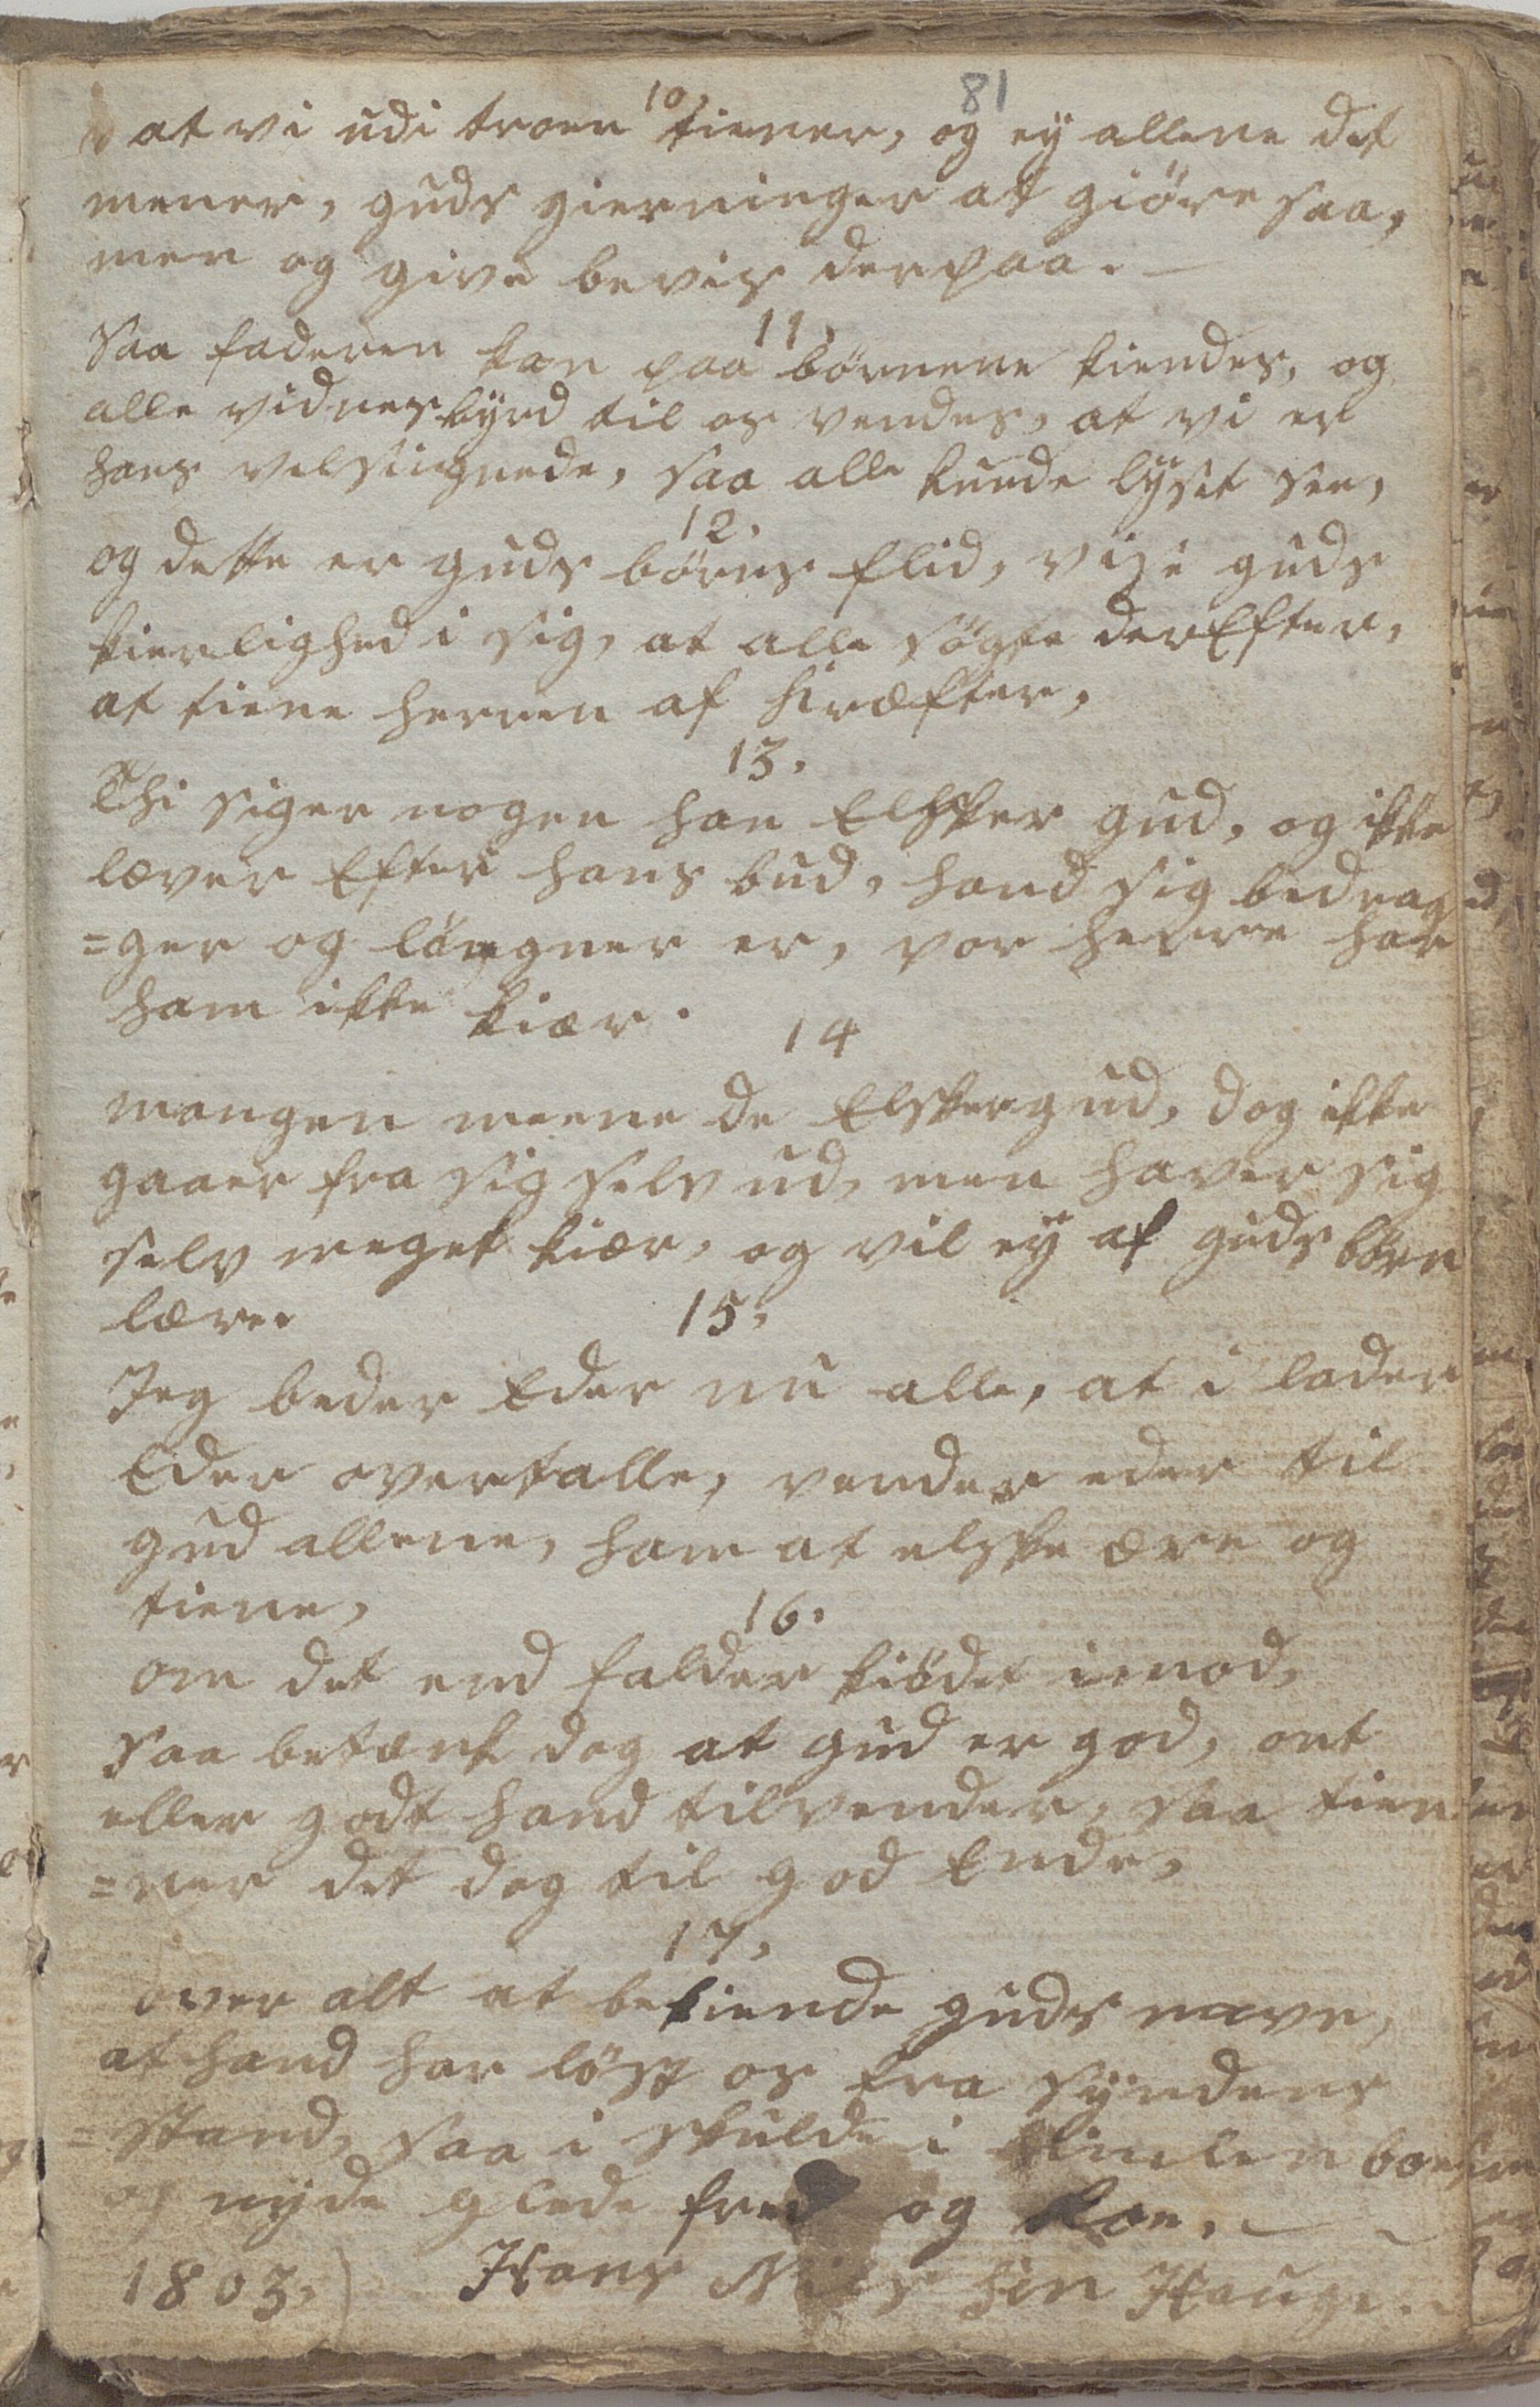 81
10,
at vi udi troen tiener, og eÿ allene det
mener, guds gierninger at giöre saa,
men og give bevis derpaa. —
11,
Saa faderen kan paa börnene kiendes, og
alle vidnesbÿrd til os vendes, at vi er
hans velsignede, saa alle kunde lÿset see,
12.
og dette er guds börns flid, vise guds
kierlighed i sig, at alle sögte derEfter,
at tiene herren af
13.
Thi siger nogen han Elsker gud, og ikke
læver Efter hans bud, hand sig bedrag
=ger og löegner er, vor herre har
ham ikke kiær.
14
mangen meene de Elsker gud, dog ikke
gaaer fra sig selv ud, men haver sig
selv meget kiær, og vil eÿ af guds börn
lære
15,
Jeg beder Eder nu alle, at i lader
Eder overtalle, vender eder til
gud allene, ham at elske ære og
tiene,
16.
om det end falder kiödet imod,
saa betænk dog at gud er god, ont
eller godt hand tilvender, saa tien
=ner det dog til god Ende,
17,
over alt at bekiende guds navn,
at hand har löst os fra sÿndens
=stand, saa i skulde i Himlen boe
og nÿde glede fred og Roe. —
1803,) Hans Niels Sön Hauge.